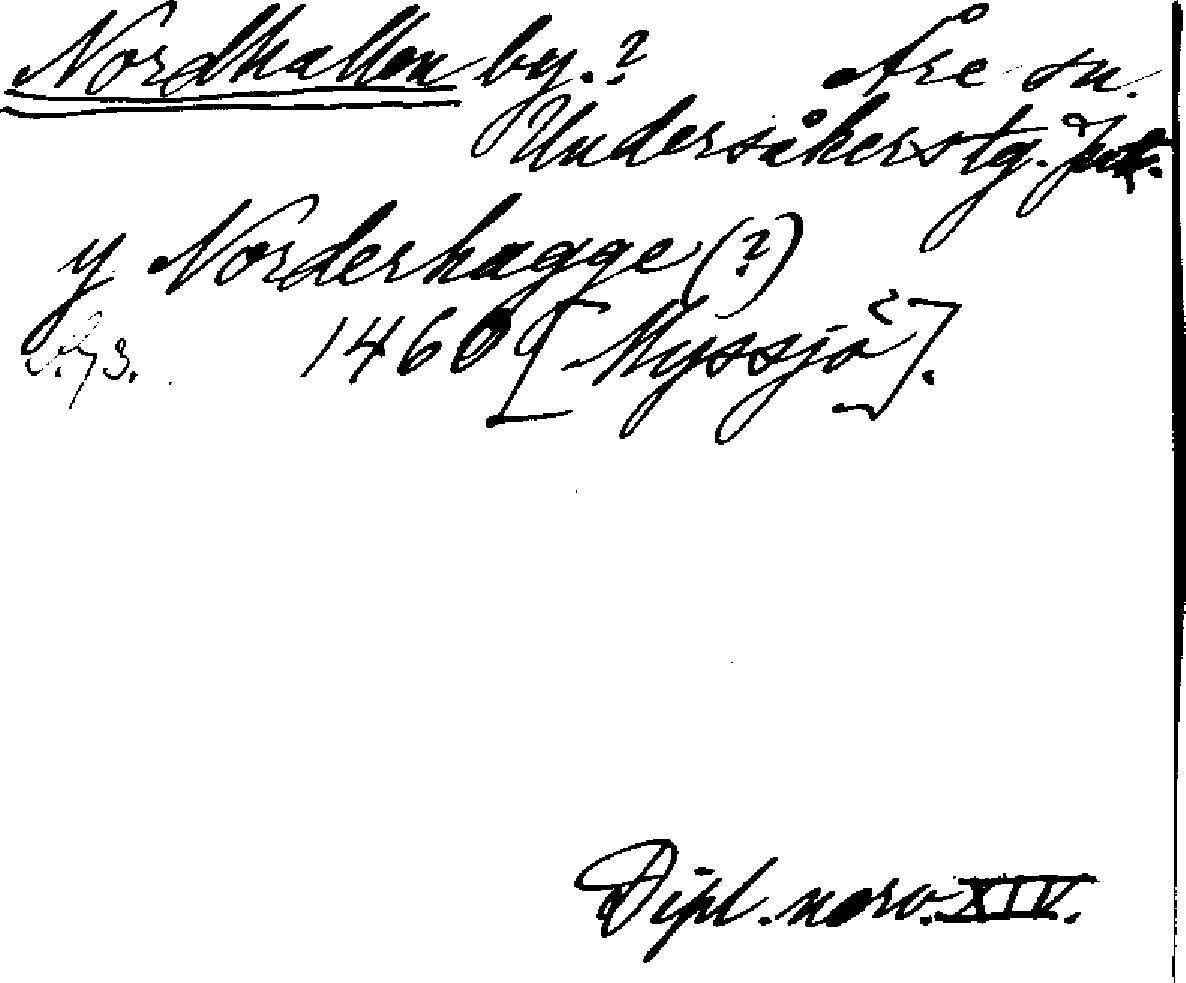 Nordhallen by.? Åre sn.
Undersåkers tg. Jmt.
y Norderhagge (?)
1460 [Myssjö].
Dipl. norv. XIV.